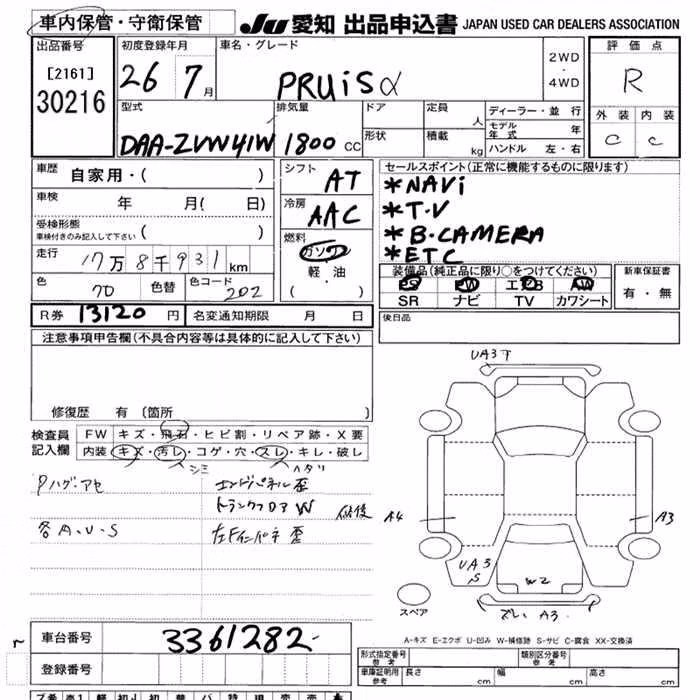 車内保管・守衛保管
JU 愛知 出品申込書 JAPAN USED CAR DEALERS ASSOCIATION
出品番号 初度登録年月 車名・グレード 評価点
[2161] 30216
26 7月 PRUiSα 2WD・4WD R
型式 排気量 ドア 定員 人 ディーラー・並行 外装 内装
DAA-ZVW41W 1800cc 形状 積載 kg モデル年式 年 C C
ハンドル 左・右
車歴 自家用・( ) シフト AT セールスポイント(正常に機能するものに限ります)
*NAVi
車検 年 月( 日) 冷房 AAC *T・V
受検形態 車検付きのみ記入して下さい ( ) *B・CAMERA
走行 17万8千931km 燃料 ガソリン・軽油 ( ) *ETC
色 70 色替 色コード 202 装備品(純正品に限り○をつけてください) 新車保証書
PS PW エアB AW 有・無
SR ナビ TV カワシート
R券 13120円 名変通知期限 月 日 後日品
注意事項申告欄(不具合内容等は具体的に記入して下さい)
修復歴 有(箇所 )
検査員記入欄 FW キズ・飛石・ヒビ割・リペア跡・X要
内装 キズ・汚レ・コゲ・穴・スレ・キレ・破レ
シミ ヘタリ
Pハグ・アセ エンドパネル歪
トランクフロアW 修復
各A・U・S 左Fインパネ歪
UA3
A4 A3
UA3 S W2
スペア ズレ A3
A-キズ E-エクボ U-凹み W-補修跡 S-サビ C-腐食 XX-交換済
車台番号 3361282
登録番号
形式指定番号 参考 類別区分番号 参考
車庫証明用 参考 長さ cm 幅 cm 高さ cm